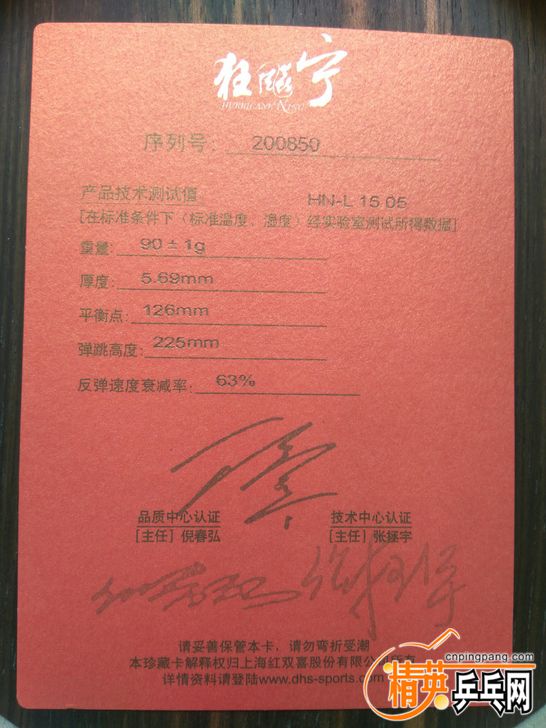 狂飚宁
HURRICANE NING
序列号: 200850
产品技术测试值 HN-L 15 05
[在标准条件下(标准温度、湿度)经实验室测试所得数据]
重量: 90±1g
厚度: 5.69mm
平衡点: 126mm
弹跳高度: 225mm
反弹速度衰减率: 63%
品质中心认证 技术中心认证
[主任]倪春弘 [主任]张拯宇
请妥善保管本卡,请勿弯折受潮
本珍藏卡解释权归上海红双喜股份有限公司所有
详情资料请登陆www.dhs-sports.com
cnpingpang.com
精英乒乓网